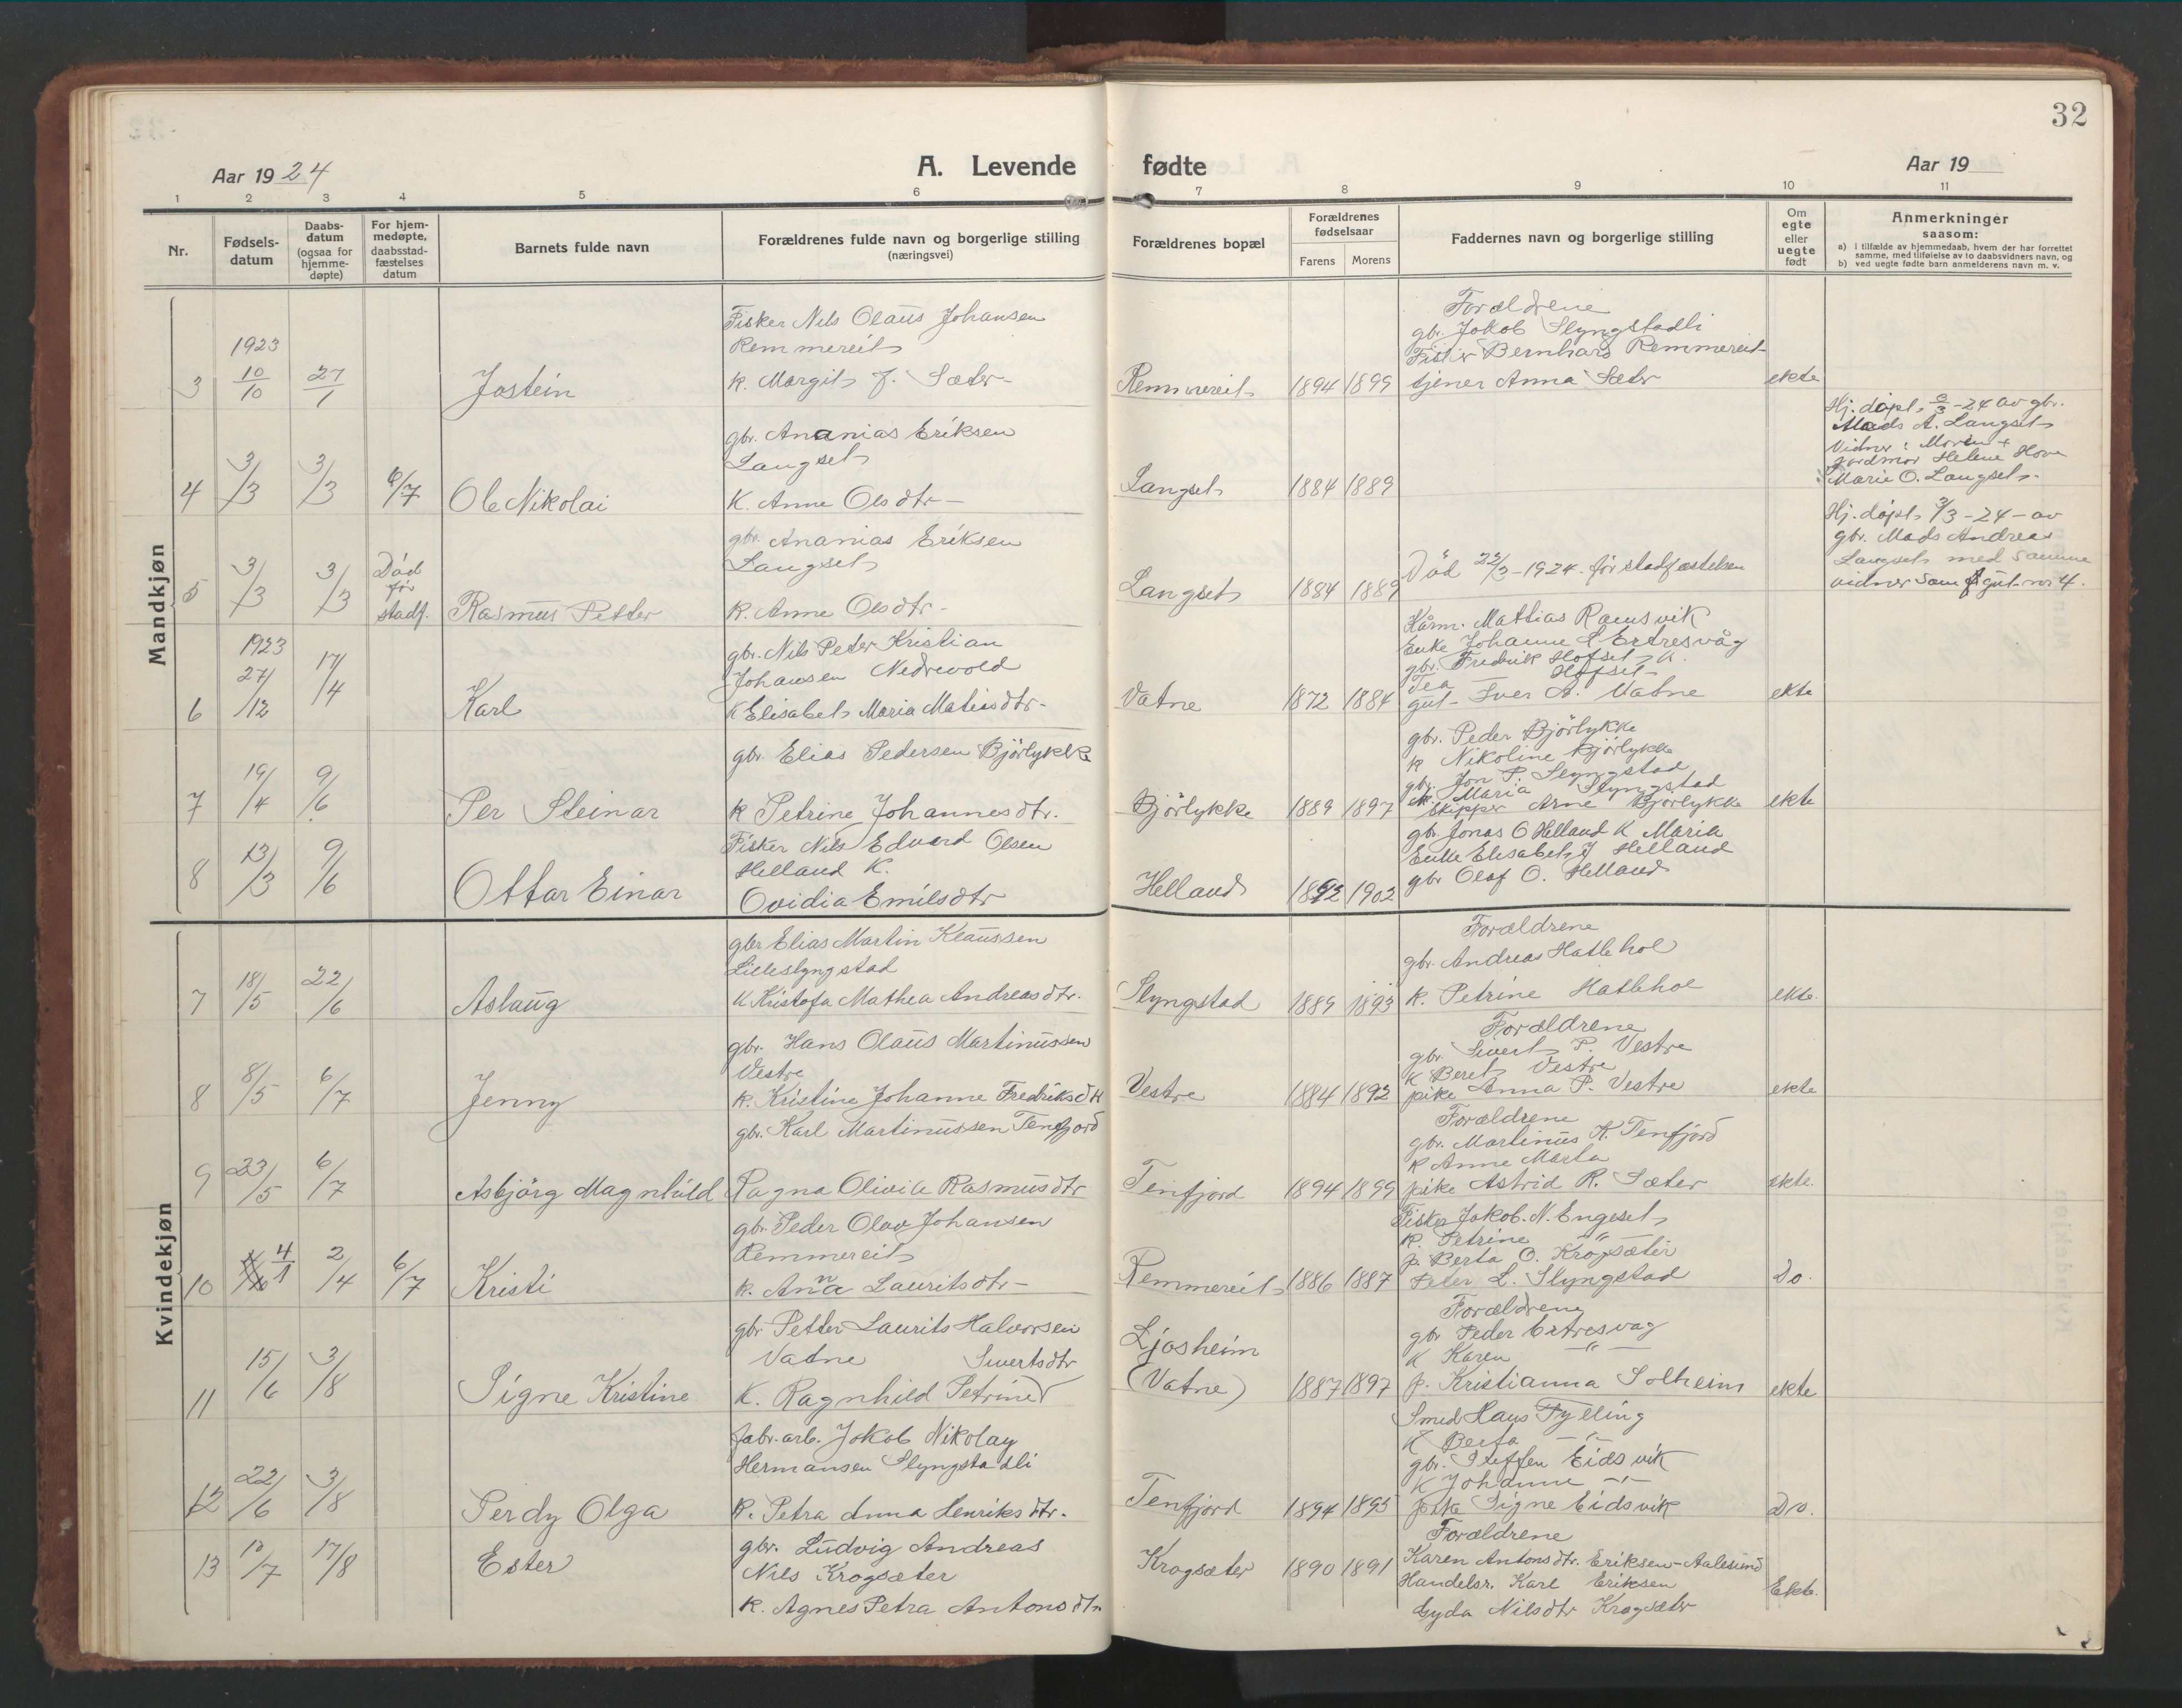 32
Aar 1924
A. Levende fødte
Aar 19
1 2 3 4 5 6 7 8 9 10 11
Nr.
Fødsels-
datum
Daabs-
datum
(ogsaa for
hjemme-
døpte)
For hjem-
medøpte,
daabsstad-
fæstelses
datum
Barnets fulde navn
Forældrenes fulde navn og borgerlige stilling
(næringsvei)
Forældrenes bopæl
Forældrenes
fødselsaar
Farens Morens
Faddernes navn og borgerlige stilling
Om
egte
eller
uegte
født
Anmerkninger
saasom:
a) i tilfælde av hjemmedaab, hvem der har forrettet
samme, med tilføielse av to daabsvidners navn, og
b) ved uegte fødte barn anmelderens navn m. v.
Mandkjøn
3
1923
10/10
27/1
Jostein
Fisker Nils Olaus Johansen
Remmereit
K. Margit J. Sæter
Remmereit
1894 1899
Forældrene
gbr. Jokob Slyngstadli
Fisker Bernhard Remmereit
tjener Anna Sæter
ekte
4
3/3
3/3
6/7
Ole Nikolai
gbr. Ananias Eriksen
Langset
K. Anne Olsdtr
Langset
1884 1889
Hj. døpt 3/3-24 av gbr.
Mads A. Langset
Vidner: Moren +
jordmor Helene Hove
Marie O. Langset
5
3/3
3/3
Död
för
stadf.
Rasmus Petter
gbr. Ananias Eriksen
Langset
K. Anne Olsdtr
Langset
1884 1889
Död 22/3-1924 för stadfæstelsen
Hj. døpt 3/3-24 av
gbr. Mads Andreas
Langset med samme
vidner som gut nr 4.
6
1923
27/12
17/4
Karl
gbr. Nils Peter Kristian
Johansen Nedrevold
K Elisabet Maria Matiasdtr
Vatne
1872 1884
Kårm. Mattias Ramsvik
Enke Johanne Ertresvåg
gbr. Fredrik Hofset K.
Tea Hofset
gut Iver A. Vatne
ekte
7
19/4
9/6
Per Steinar
gbr. Elias Pedersen Björlykke
K Petrine Johannesdtr.
Björlykke
1889 1897
gbr. Peder Björlykke
K Nikoline Björlykke
gbr Jon P. Slyngstad
K. Maria Slyngstad
Skipper Arne Björlykke
ekte
8
13/3
9/6
Ottar Einar
Fisker Nils Edvard Olsen
Helland K.
Ovidia Emilsdtr
Helland
1892 1902
gbr Jonas O Helland K Maria
Enke Elisabet J Helland
gbr Olaf O. Helland
Kvindekjøn
7
18/5
22/6
Aslaug
gbr Elias Martin Klaussen
Lilleslyngstad
K Kristofa Mathea Andreasdtr.
Slyngstad
1889 1893
Forældrene
gbr. Andreas Hatlehol
K. Petrine Hatlehol
ekte.
8
8/5
6/7
Jenny
gbr. Hans Olaus Martinussen
Vestre
K. Kristine Johanne Fredriksdtr
Vestre
1884 1892
Forældrene
gbr. Sivert P. Vestre
K Beret Vestre
pike Anna P. Vestre
ekte
9
23/5
6/7
Asbjörg Magnhild
gbr. Karl Martinussen Tenfjord
Ragna Olivia Rasmusdtr
Tenfjord
1894 1899
Forældrene
gbr. Martinus K. Tenfjord
K Anne Marta
pike Astrid R. Sæter
ekte.
10
4/1
2/4
6/7
Kristi
gbr. Peder Olav Johansen
Remmereit
K. Anna Lauritsdtr
Remmereit
1886 1887
Fisker Jakob N. Engeset
K. Petrine — " —
p. Berta O. Krogsæter
Peter L. Slyngstad
Do.
11
15/6
3/8
Signe Kristine
gbr Petter Laurits Halvorsen
Vatne Sivertsdtr
K. Ragnhild Petrine
Ljosheim
(Vatne)
1887 1897
Forældrene
gbr Peder Ertresvag
K Karen — " —
p. Kristianna Solheim
ekte
12
22/6
3/8
Perdy Olga
fabr. arb. Jokob Nikolay
Hermansen Slyngstadli
K. Petra Anna Henriksdtr.
Tenfjord
1894 1895
Smed Hans Fylling
K Berta — " —
gbr. Steffen Eidsvik
K Johanne — " —
pike Signe Eidsvik
Do.
13
10/7
17/8
Ester
gbr. Ludvig Andreas
Nils Krogsæter
K. Agnes Petra Antonsdtr
Krogsæter
1890 1891
Forældrene
Karen Antonsdtr. Eriksen-Aalesund
Handelsr. Karl Eriksen
Gyda Nilsdtr Krogsæter
Ekte.